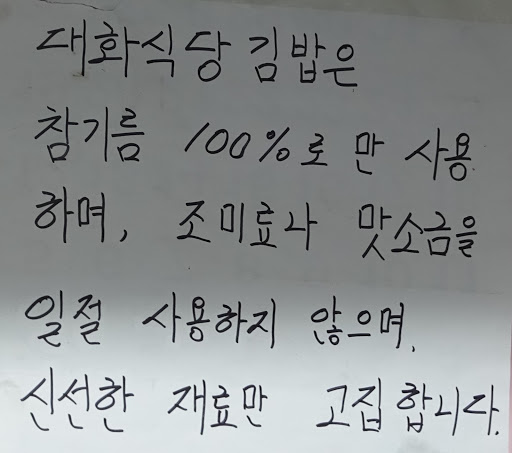 대화식당 김밥은
참기름 100%로 만 사용
하며, 조미료나 맛소금을
일절 사용하지 않으며,
신선한 재료만 고집합니다.